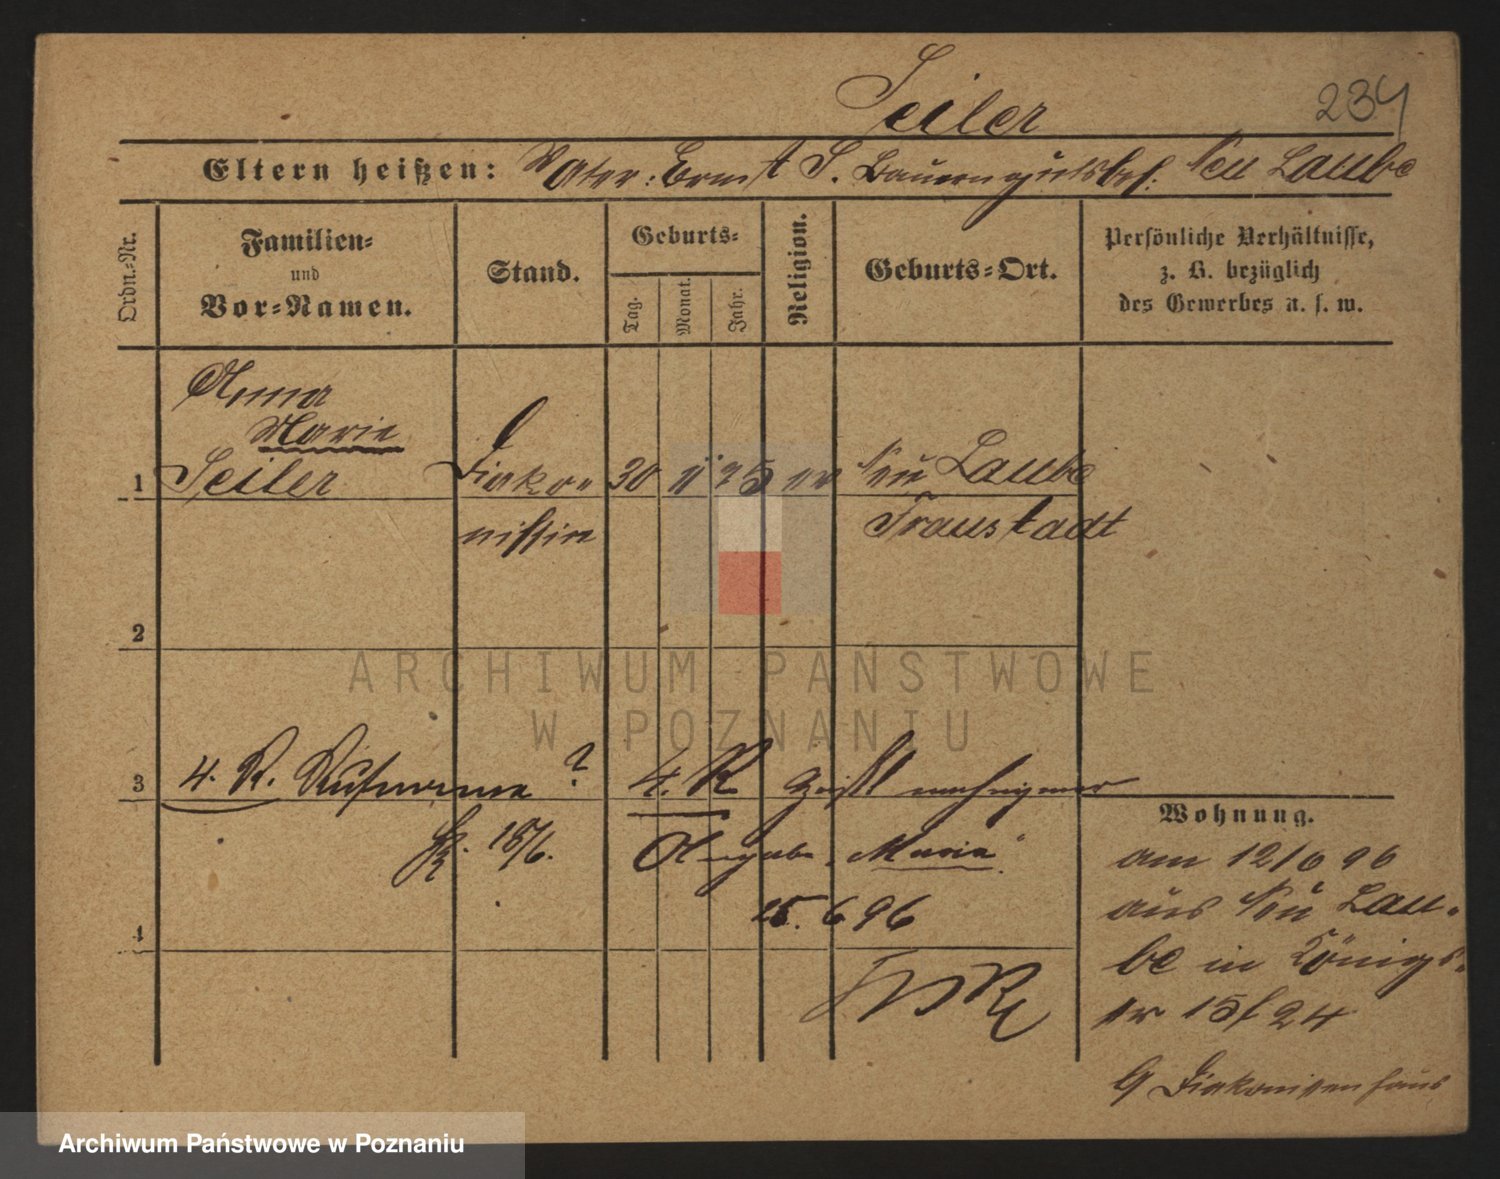 Seiler 234
Eltern heißen: Vater: Ernst S. Bauerngutsbes. Neu Laube
Ordn.-Nr.
Familien-
und
Vor-Namen.
Stand.
Geburts-
Tag.
Monat.
Jahr.
Religion.
Geburts-Ort.
Persönliche Verhältnisse,
z. B. bezüglich
des Gewerbes u. s. w.
Anna
Marie
1 Seiler Diako- 30 11 75 ev Neu Laube
nissin Fraustadt
2
ARCHIWUM PAŃSTWOWE
W POZNANIU
3 4. R. Rufname ? 4. R
18/6.
Angabe "Marie"
15. 6 96
4
Wohnung.
am 12/6 96
aus Neu Lau-
be in Königs-
str 15/24
Diakonissenhaus
Archiwum Państwowe w Poznaniu